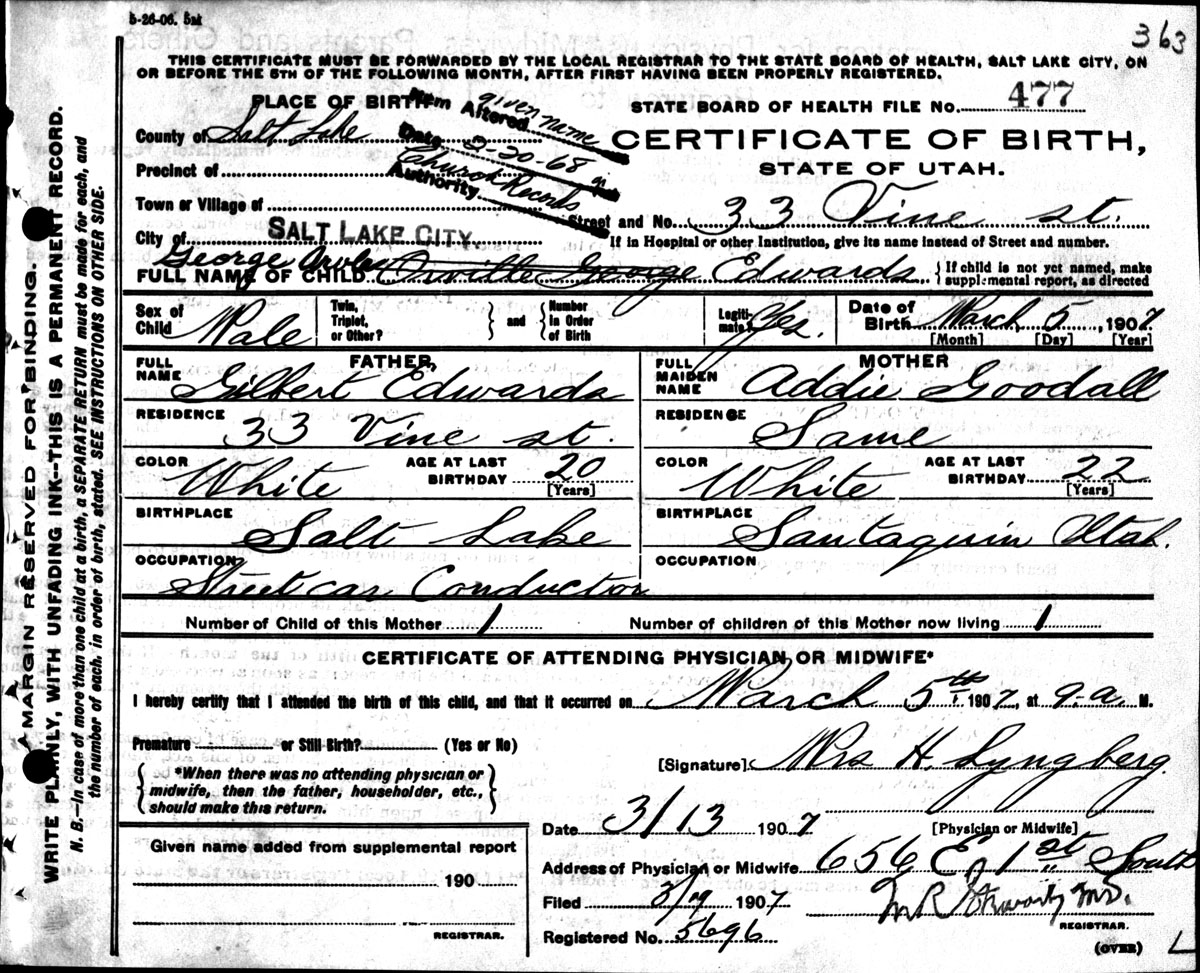 5-26-06. 5M
363
THIS CERTIFICATE MUST BE FORWARDED BY THE LOCAL REGISTRAR TO THE STATE BOARD OF HEALTH, SALT LAKE CITY, ON
OR BEFORE THE 5TH OF THE FOLLOWING MONTH, AFTER FIRST HAVING BEEN PROPERLY REGISTERED.
PLACE OF BIRTH
Item Altered given name
Date 2-20-68
Authority Church Records
STATE BOARD OF HEALTH FILE No. 477
County of Salt Lake
CERTIFICATE OF BIRTH,
STATE OF UTAH.
Precinct of
Town or Village of
Street and No. 33 Vine st.
City of SALT LAKE CITY.
If in Hospital or other Institution, give its name instead of Street and number.
George
FULL NAME OF CHILD Orville George Edwards
{ If child is not yet named, make
supplemental report, as directed
Sex of Child Male
Twin, Triplet, or Other? } and { Number In Order of Birth
Legiti-mate? Yes.
Date of Birth March 5, 1907
[Month] [Day] [Year]
FATHER
FULL NAME Gilbert Edwards
MOTHER
FULL MAIDEN NAME Addie Goodall
RESIDENCE 33 Vine st.
RESIDENCE Same
COLOR White AGE AT LAST BIRTHDAY 20 [Years]
COLOR White AGE AT LAST BIRTHDAY 22 [Years]
BIRTHPLACE Salt Lake
BIRTHPLACE Santaquin Utah.
OCCUPATION Street car Conductor
OCCUPATION
Number of Child of this Mother 1
Number of children of this Mother now living 1
CERTIFICATE OF ATTENDING PHYSICIAN OR MIDWIFE*
I hereby certify that I attended the birth of this child, and that it occurred on March 5th, 1907, at 9-a. M.
Premature or Still Birth? (Yes or No)
{ *When there was no attending physician or
midwife, then the father, householder, etc.,
should make this return. }
[Signature] Mrs H. Lyngberg.
[Physician or Midwife]
Date 3/13 1907
Given name added from supplemental report
190
REGISTRAR.
Address of Physician or Midwife 656 E, 1st South
Filed 1907
M.D.
REGISTRAR.
Registered No. 5696
(OVER)
L
MARGIN RESERVED FOR BINDING.
WRITE PLAINLY, WITH UNFADING INK--THIS IS A PERMANENT RECORD.
N. B.—In case of more than one child at a birth, a SEPARATE RETURN must be made for each, and
the number of each, in order of birth, stated. SEE INSTRUCTIONS ON OTHER SIDE.